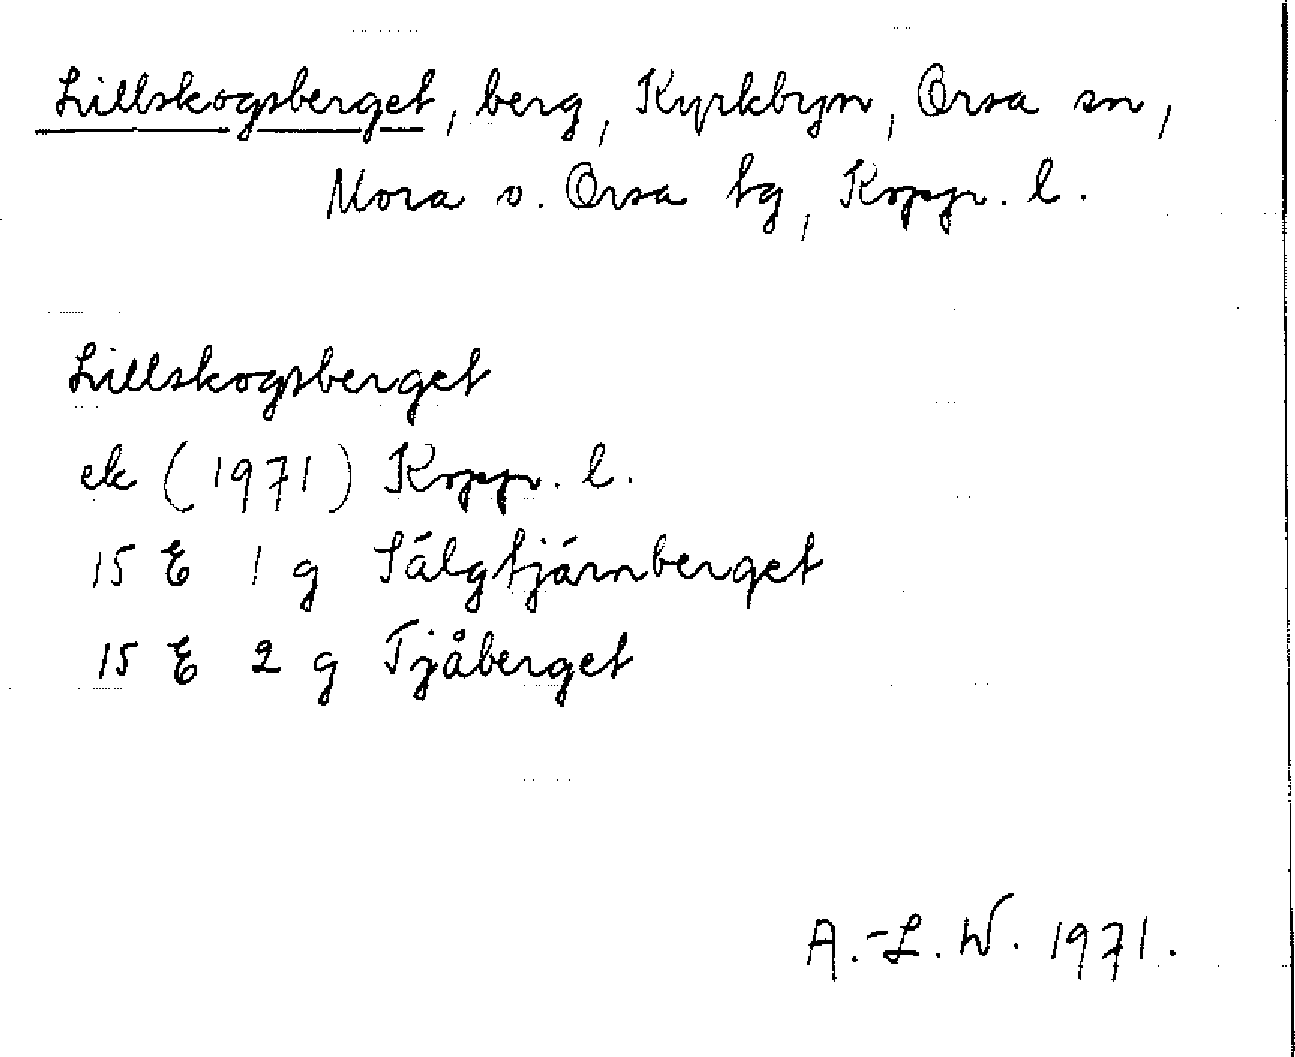 Lillskogsberget, berg, Kyrkbyn, Orsa sn,
Mora o. Orsa tg, Koppr. l.
Lillskogsberget
ek (1971) Koppr. l.
15 E 1 g Sälgtjärnberget
15 E 2 g Tjåberget
A.-L. W. 1971.